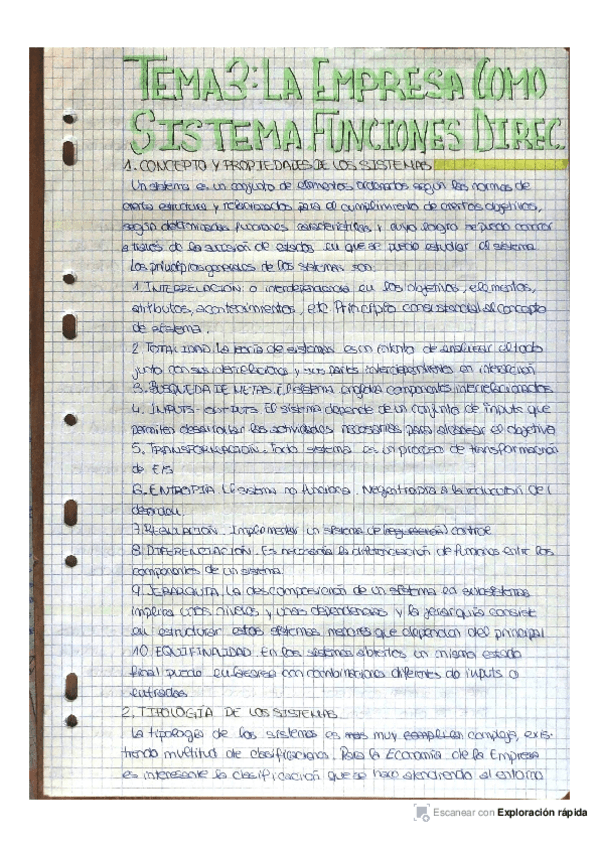 TEMA 3: LA EMPRESA COMO
SISTEMA FUNCIONES DIREC.
1. CONCEPTO Y PROPIEDADES DE LOS SISTEMAS
Un sistema es un conjunto de elementos ordenados según las normas de
cierta estructura y relacionados para el cumplimiento de ciertos objetivos,
según determinadas funciones características y cuya lógica se puede conocer
a través de la sucesión de estados en que se puede estudiar el sistema
Los principios generales de los sistemas son:
1. INTERRELACIÓN o interdependencia en los objetivos, elementos,
atributos, acontecimientos, etc. Principio consustancial al concepto
de sistema.
2. TOTALIDAD. La teoría de sistemas es un intento de analizar el todo
junto con sus interrelaciones y sus partes interdependientes en interacción
3. BUSQUEDA DE METAS. El sistema engloba componentes interrelacionados
4. INPUTS-OUTPUTS. El sistema depende de un conjunto de inputs que
permiten desarrollar las actividades necesarias para alcanzar el objetivo
5. TRANSFORMACIÓN. Todo sistema es un proceso de transformación
de E/S
6. ENTROPIA. El sistema no funciona. Negentropia a la reducción del
desorden.
7. REGULACION. Implementar un sistema de (regulación) control
8. DIFERENCIACIÓN. Es necesaria la diferenciación de funciones entre los
componentes de un sistema
9. JERARQUÍA. La descomposición de un sistema en subsistemas
implica unos niveles y unas dependencias y la jerarquía consiste
en estructurar estos sistemas menores que dependen del principal
10. EQUIFINALIDAD. En los sistemas abiertos un mismo estado
final puede con combinaciones diferentes de inputs o
entradas
2. TIPOLOGÍA DE LOS SISTEMAS
La tipología de los sistemas es muy compleja, exis-
tiendo multitud de clasificaciones. Para la Economía de la Empresa
es interesante la clasificación que se hace atendiendo al entorno
Escanear con Exploración rápida